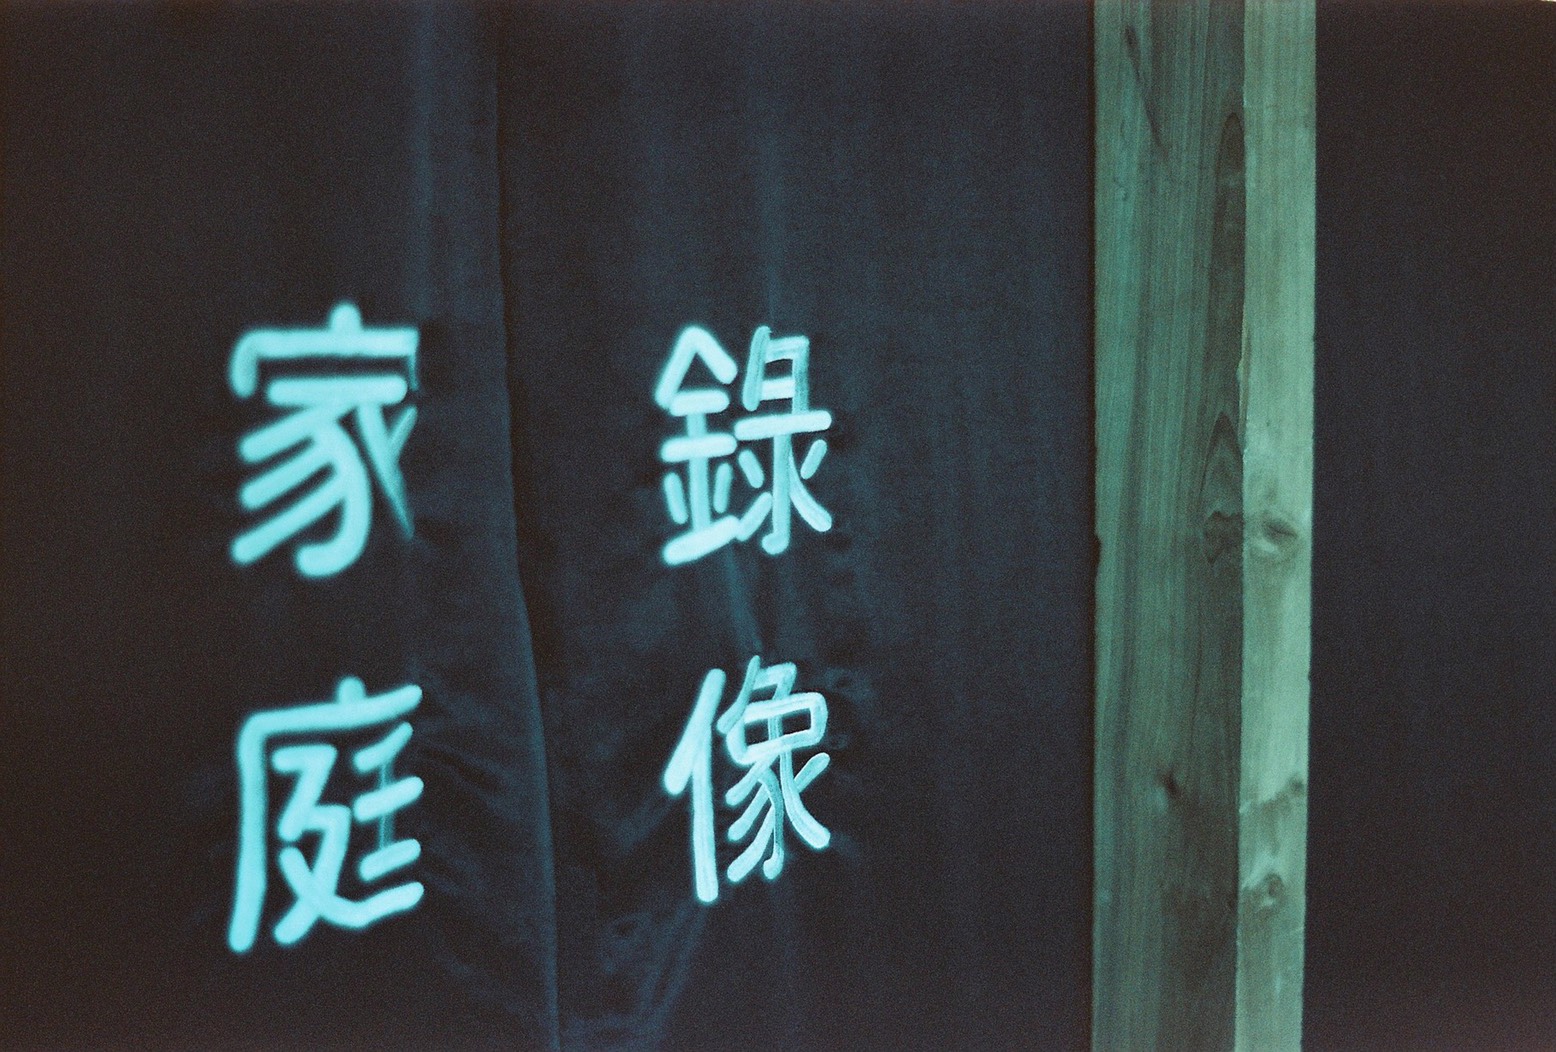 家庭
錄像